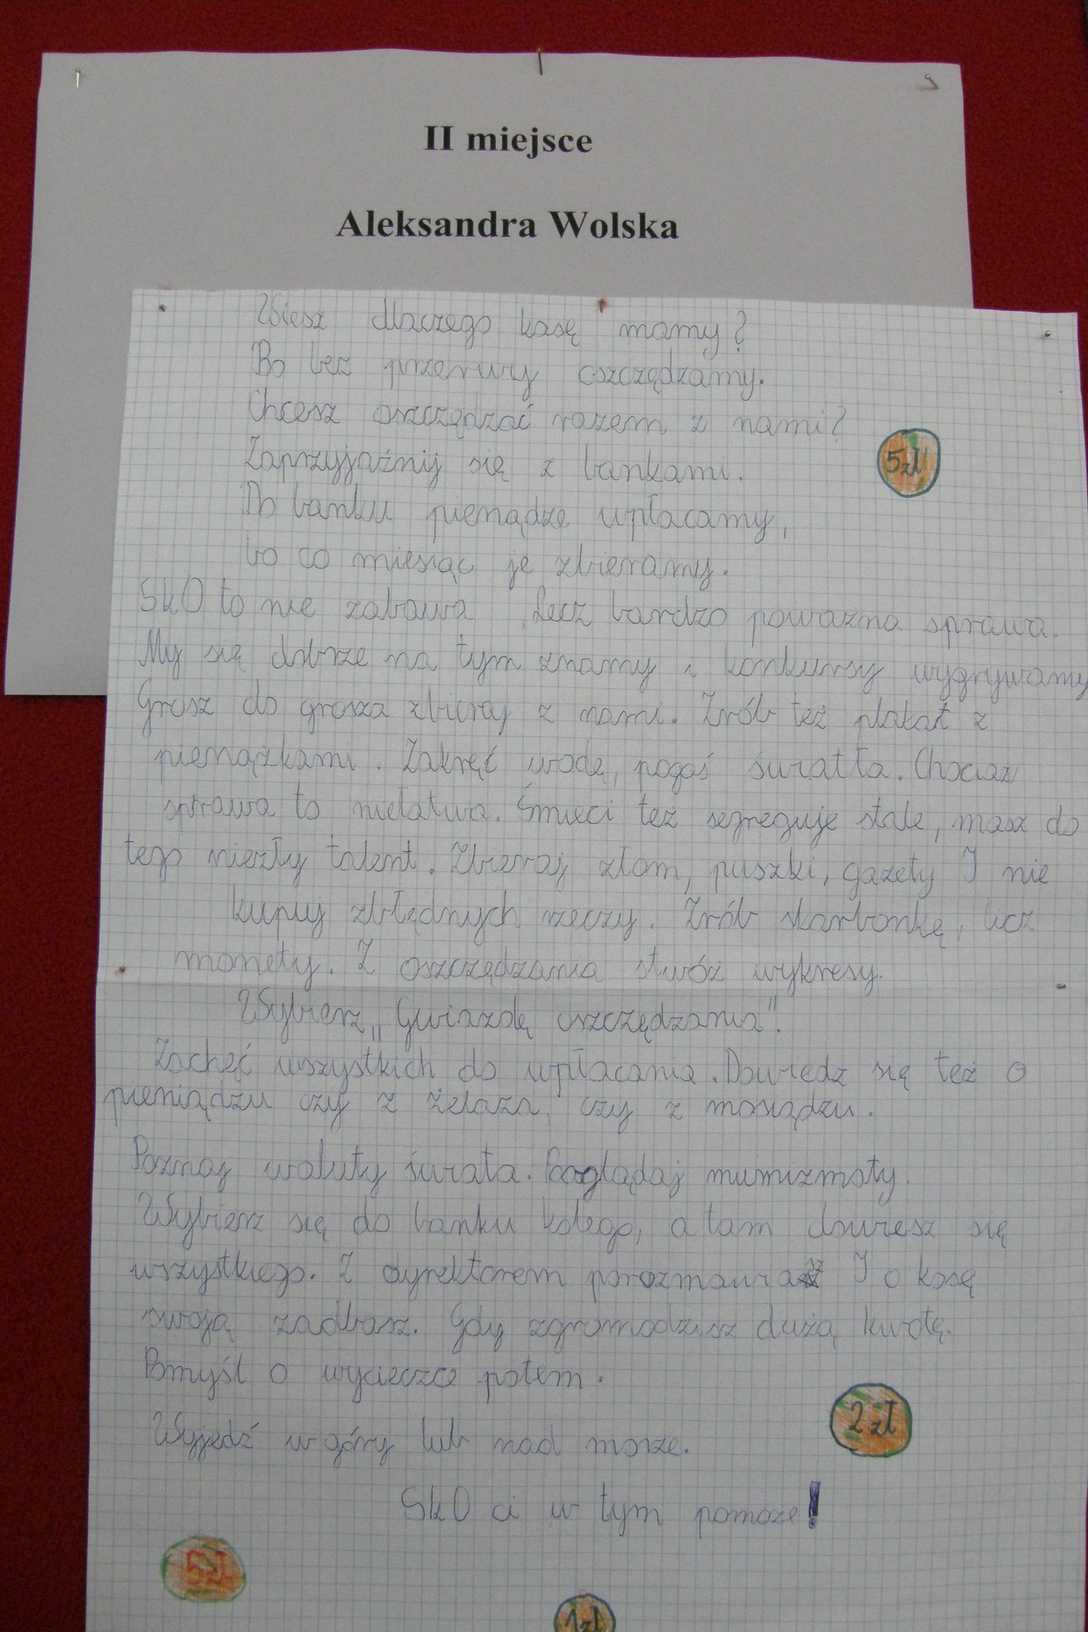 II miejsce
Aleksandra Wolska
Wiesz dlaczego kasę mamy?
Bo bez przerwy oszczędzamy.
Chcesz oszczędzać razem z nami?
Zaprzyjaźnij się z bankami.
Do banku pieniądze wpłacamy,
bo co miesiąc je zbieramy.
SKO to nie zabawa, Lecz bardzo poważna sprawa.
My się dobrze na tym znamy i konkursy wygrywamy
Grosz do grosza zbieraj z nami. Zrób też plakat z
pieniążkami. Zakręć wodę, pogaś światła. Chociaż
sprawa to niełatwa. Śmieci też segreguje stale, masz do
tego niezły talent. Zbieraj złom, puszki, gazety I nie
kupuj zbłędnych rzeczy. Zrób skarbonkę, licz
monety. Z oszczędzania stwórz wykresy.
Wybierz „Gwiazdę oszczędzania".
Zachęć wszystkich do wpłacania. Dowiedz się też o
pieniądzu czy z żelaza, czy z mosiądzu.
Poznaj waluty świata. Pooglądaj numizmaty.
Wybierz się do banku kolego, a tam dowiesz się
wszystkiego. Z dyrektorem porozmawiasz I o kasę
swoją zadbasz. Gdy zgromadzisz dużą kwotę.
Pomyśl o wycieczce potem.
Wyjedź w góry lub nad morze.
SKO ci w tym pomoże!
5zł
2 zł
5zł
1zł